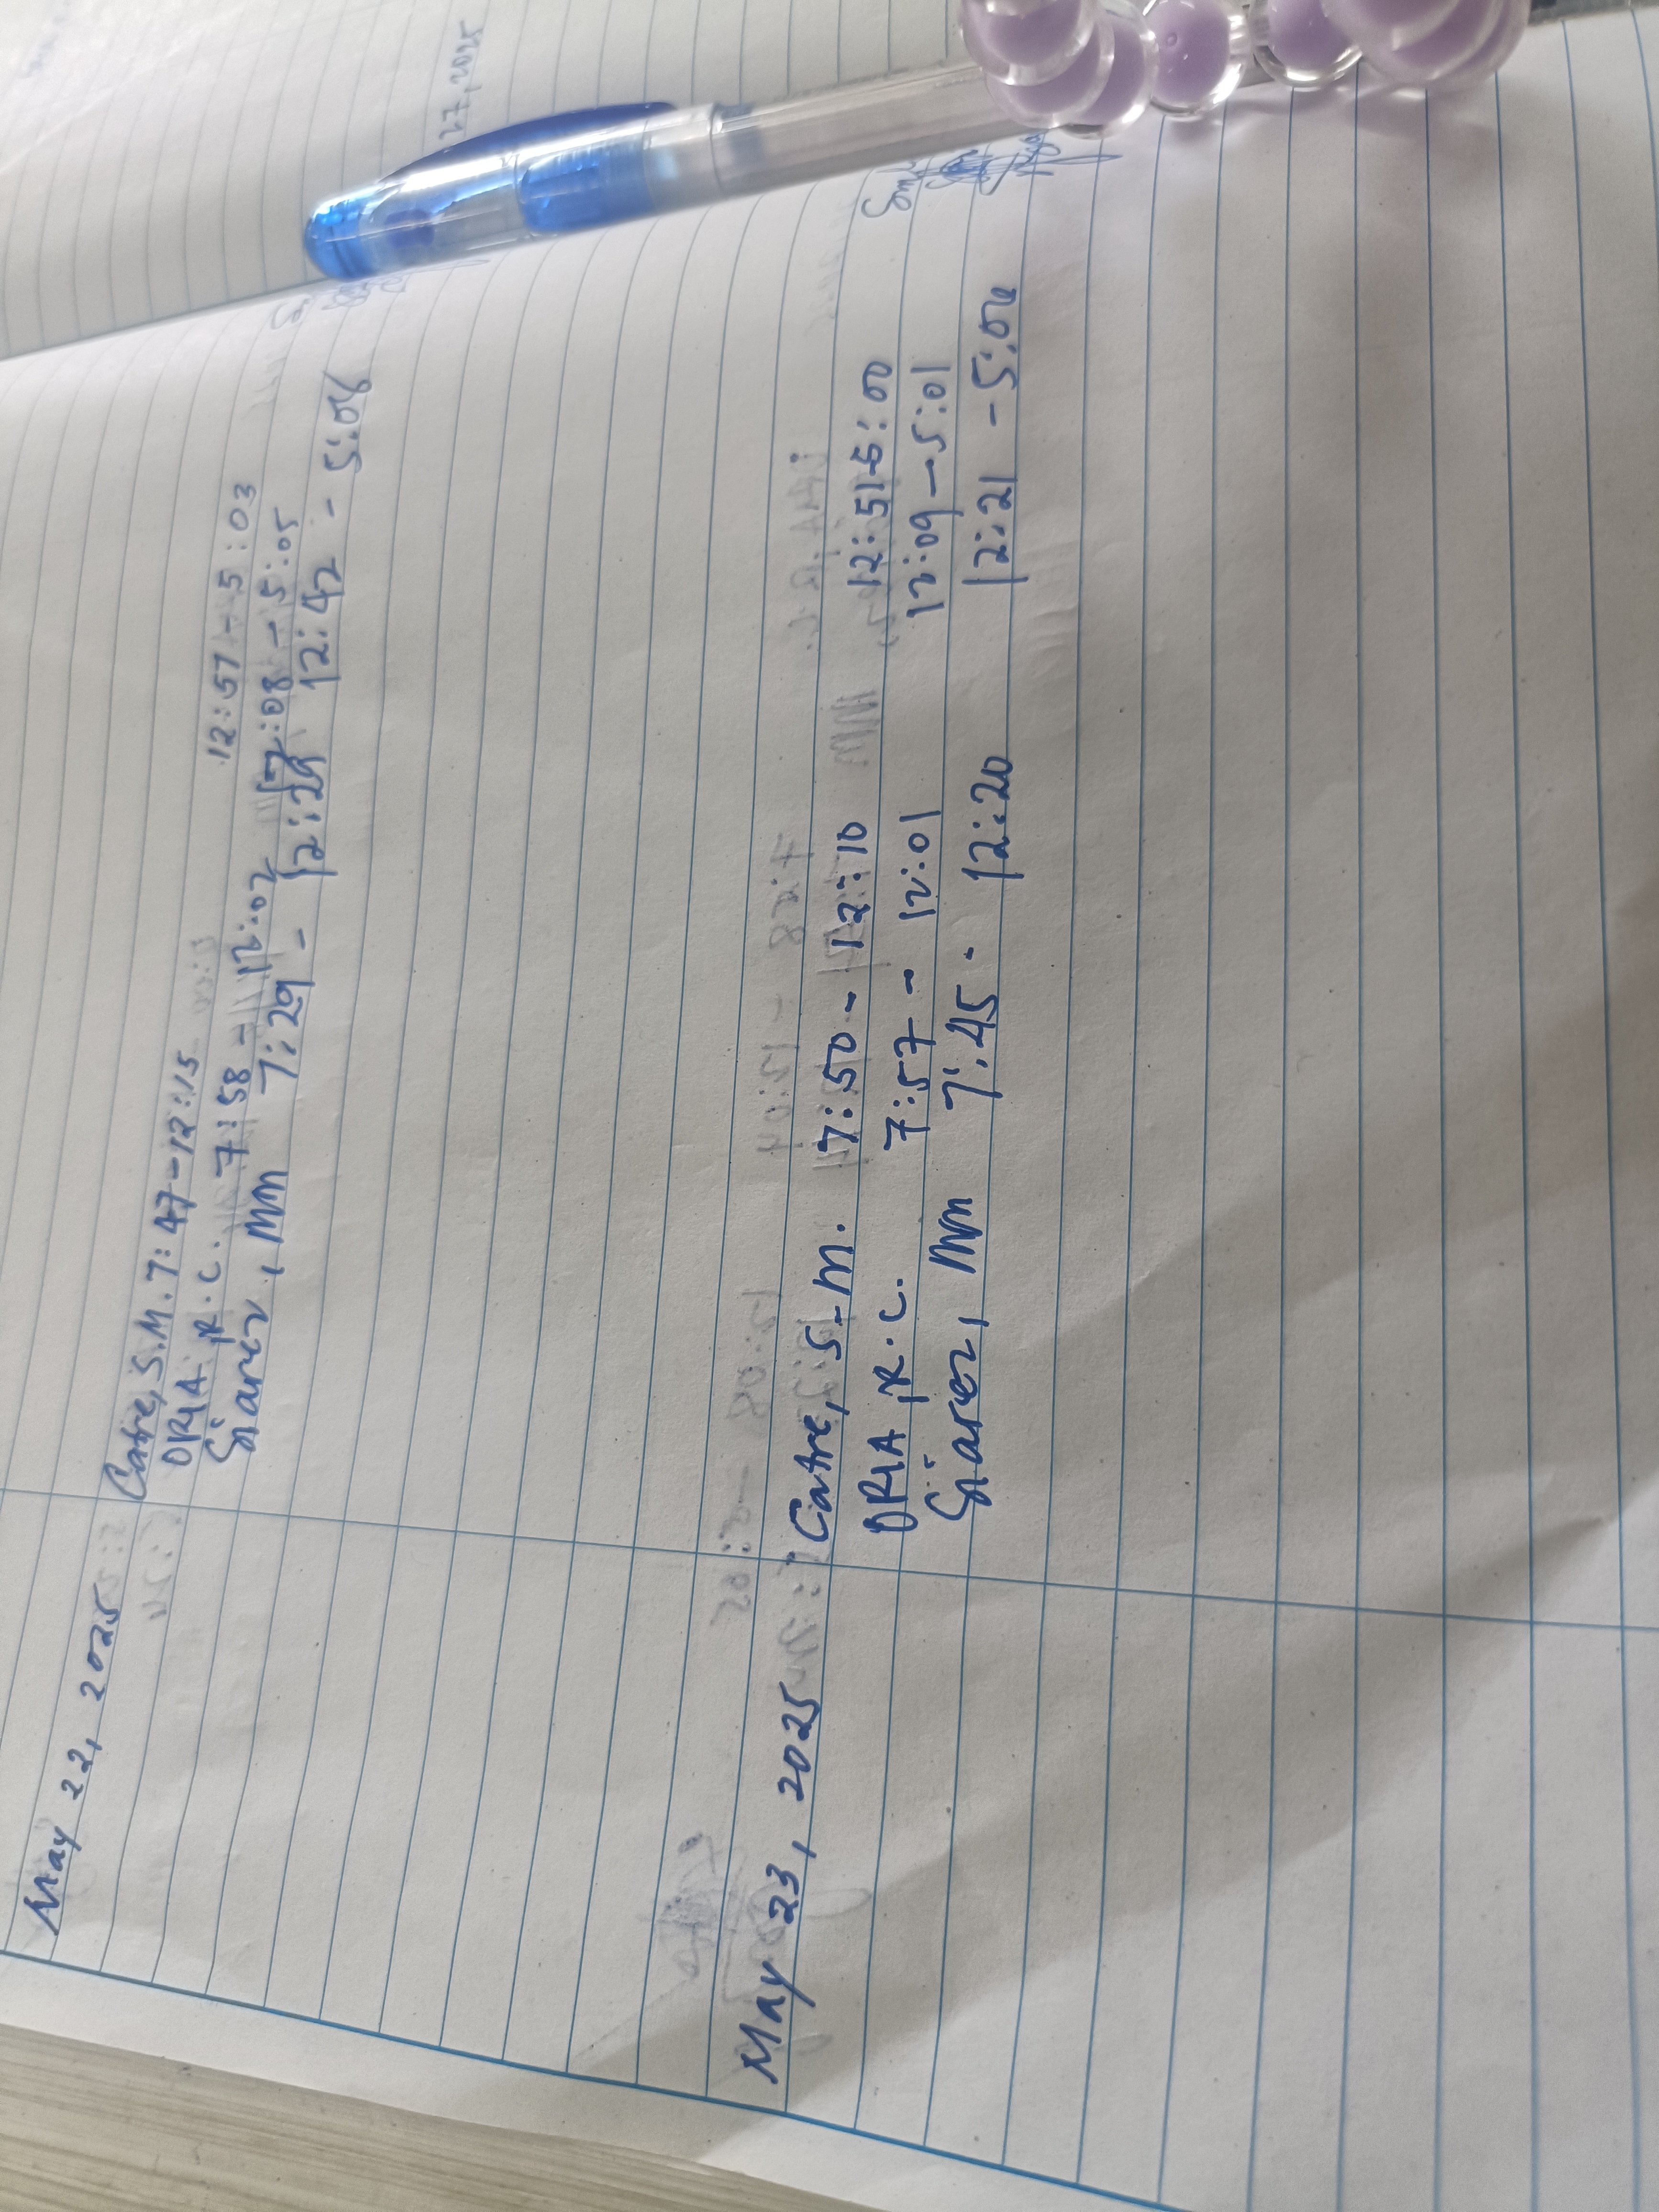 May 22, 2025
Catre, S.M. 7:47-12:15 12:57-5:03
ORIA, R.C. 7:58-12:02 12:08-5:05
Siarez, MM 7:29 - 12:29 12:42 - 5:06
May 23, 2025
Catre, S.M. 7:50 - 12:10 12:51-5:00
ORIA, R.C. 7:57 - 12:01 12:09-5:01
Siarez, MM 7:45 - 12:20 12:21 - 5:04
27, 2025